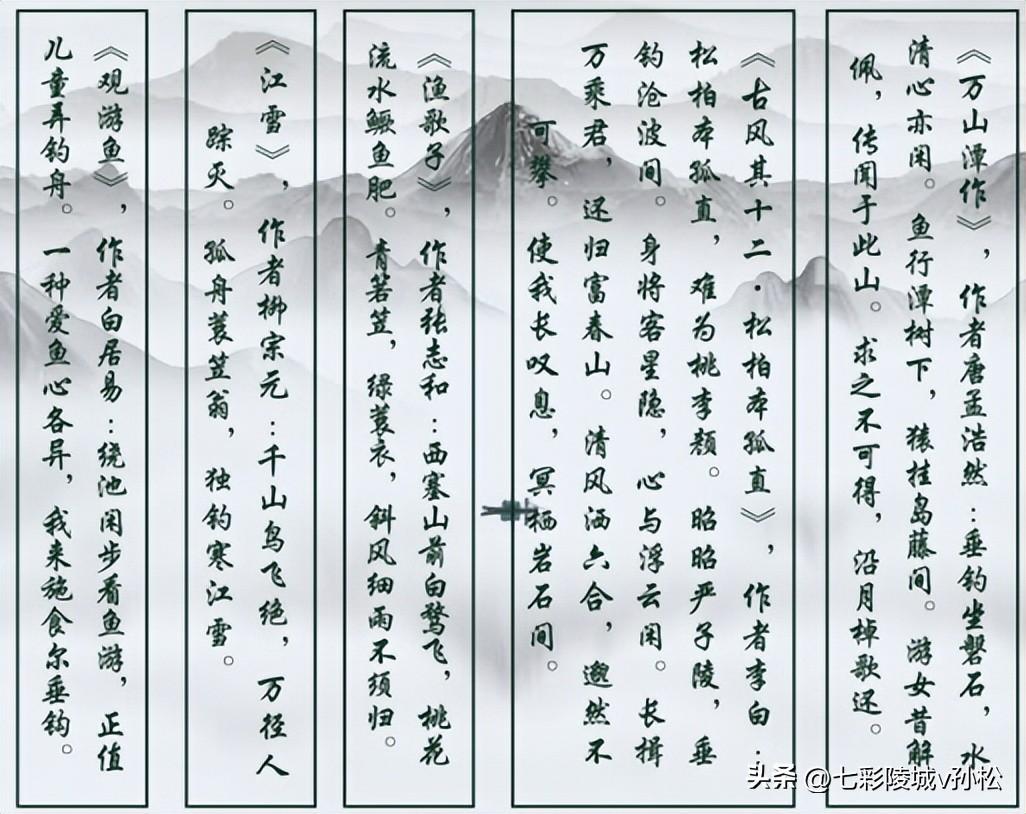 《万山潭作》，作者唐孟浩然：垂钓坐磐石，水
清心亦闲。鱼行潭树下，猿挂岛藤间。游女昔解
佩，传闻于此山。求之不可得，沿月棹歌还。
《古风其十二·松柏本孤直》，作者李白：
松柏本孤直，难为桃李颜。昭昭严子陵，垂
钓沧波间。身将客星隐，心与浮云闲。长揖
万乘君，还归富春山。清风洒六合，邈然不
可攀。使我长叹息，冥栖岩石间。
《渔歌子》，作者张志和：西塞山前白鹭飞，桃花
流水鳜鱼肥。青箬笠，绿蓑衣，斜风细雨不须归。
《江雪》，作者柳宗元：千山鸟飞绝，万径人
踪灭。孤舟蓑笠翁，独钓寒江雪。
《观游鱼》，作者白居易：绕池闲步看鱼游，正值
儿童弄钓舟。一种爱鱼心各异，我来施食尔垂钩。
头条 @七彩陵城v孙松